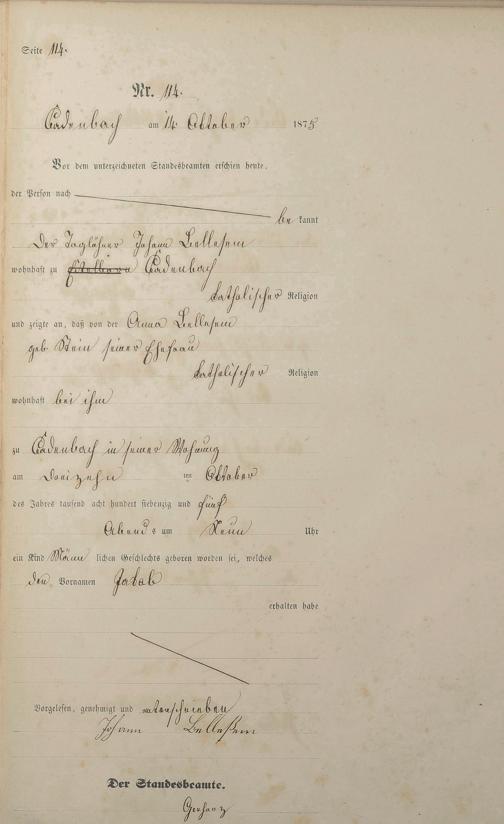 Seite 114.
Nr. 114.
Cadenbach am 14. Oktober 1875
Vor dem unterzeichneten Standesbeamten erschien heute,
der Person nach
be kannt
Der Taglöhner Johann Bellesem
wohnhaft zu Cadenbach
katholischer Religion
und zeigte an, daß von der Anna Bellesem
geb Stein seiner Ehefrau
katholischer Religion
wohnhaft bei ihm
zu Cadenbach in seiner Wohnung
am dreizehn ten Oktober
des Jahres tausend acht hundert siebenzig und fünf
Abends um Neun Uhr
ein Kind Männ lichen Geschlechts geboren worden sei, welches
den Vornamen Jakob
erhalten habe
Vorgelesen, genehmigt und unterschrieben
Johann
Der Standesbeamte.